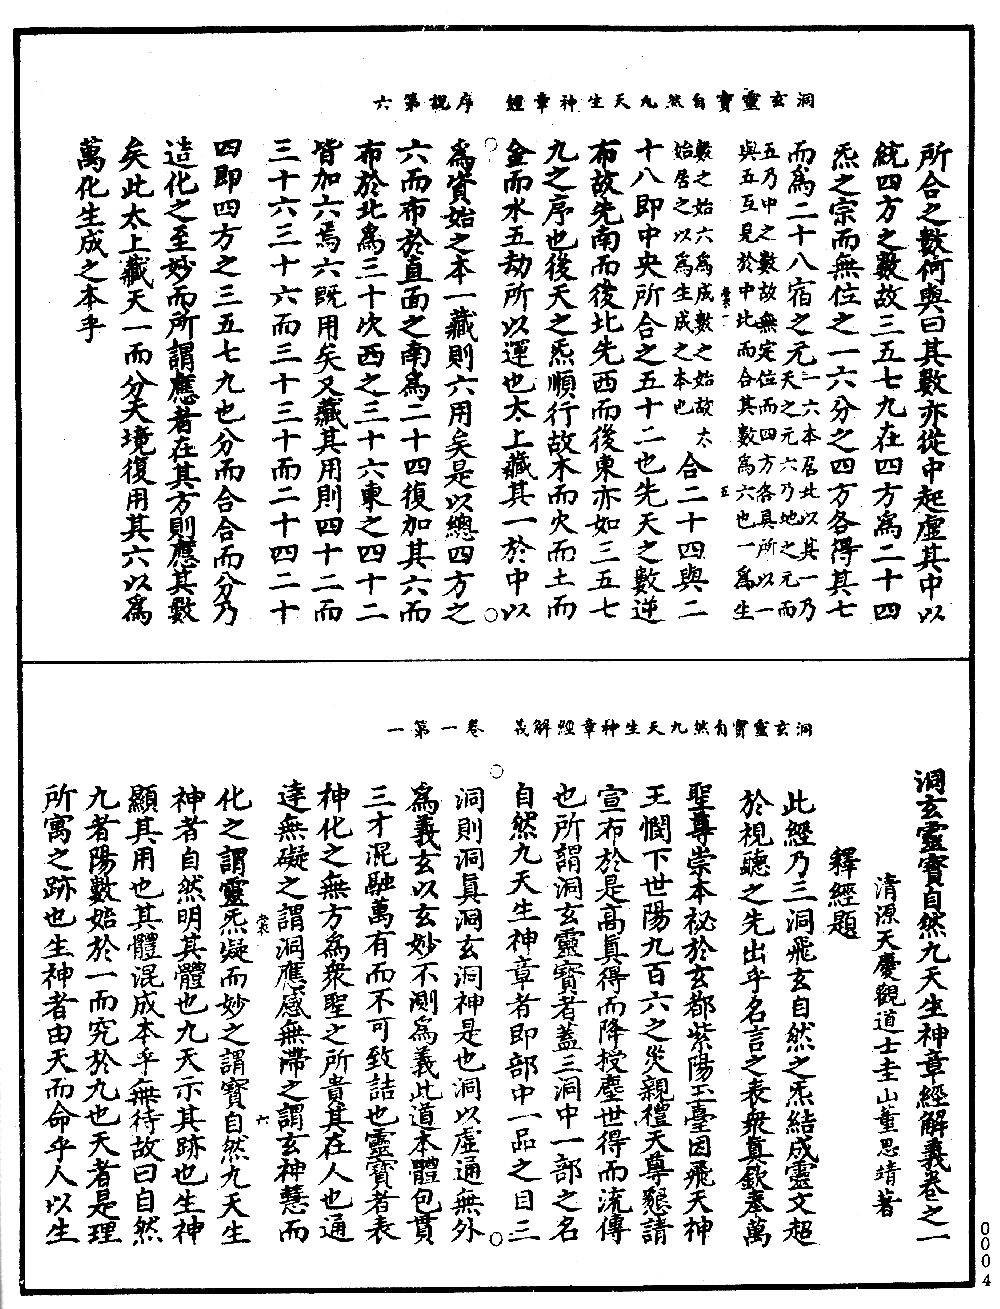 洞玄靈寶自然九天生神章經　序說第六
所合之數何與曰其數亦從中起虛其中以
統四方之數故三五七九在四方為二十四
炁之宗而無位之一六分之四方各得其七
而為二十八宿之元一六本居北以其一乃天之元六乃地之元而
五乃中之數故無定位而四方各具所以一與五互見於中此而合其數為六也一為生
數之始六為成數之始故太始居之以為生成之本也合二十四與二
十八即中央所合之五十二也先天之數逆
布故先南而後北先西而後東亦如三五七
九之序也後天之炁順行故木而火而土而
金而水五劫所以運也太上藏其一於中以
為資始之本一藏則六用矣是以總四方之
六而布於直面之南為二十四復加其六而
布於北為三十次西之三十六東之四十二
皆加六焉六既用矣又藏其用則四十二而
三十六三十六而三十三十而二十四二十
四即四方之三五七九也分而合合而分乃
造化之至妙而所謂應者在其方則應其數
矣此太上藏天一而分天境復用其六以為
萬化生成之本乎
洞玄靈寶自然九天生神章經解義　卷一第一
洞玄靈寶自然九天生神章經解義卷之一
清源天慶觀道士圭山董思靖著
釋經題
此經乃三洞飛玄自然之炁結成靈文超
於視聽之先出乎名言之表眾真欽奉萬
聖尊崇本祕於玄都紫陽玉臺因飛天神
王憫下世陽九百六之災親禮天尊懇請
宣布於是高真得而降授塵世得而流傳
也所謂洞玄靈寶者蓋三洞中一部之名
自然九天生神章者即部中一品之目三
洞則洞真洞玄洞神是也洞以虛通無外
為義玄以玄妙不測為義此道本體包貫
三才混融萬有而不可致詰也靈寶者表
神化之無方為眾聖之所貴其在人也通
達無礙之謂洞應感無滯之謂玄神慧而
化之謂靈炁凝而妙之謂寶自然九天生
神者自然明其體也九天示其跡也生神
顯其用也其體混成本乎無待故曰自然
九者陽數始於一而究於九也天者是理
所寓之跡也生神者由天而命乎人以生
0004